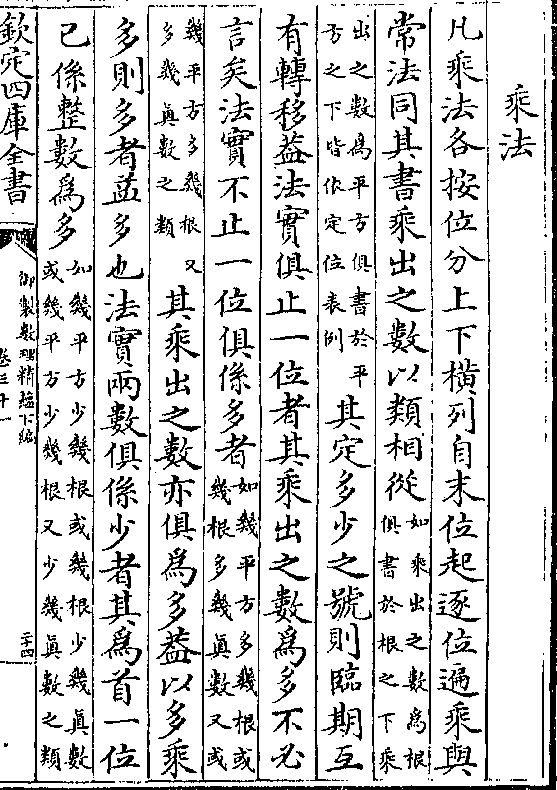 乘法
凡乘法各按位分上下橫列自末位起逐位遍乘與
常法同其書乘出之數以類相從如乘出之數為根俱書於根之下乘
出之數為平方俱書於平方之下皆依定位表例其定多少之號則臨期互
有轉移葢法實俱止一位者其乘出之數為多不必
言矣法實不止一位俱係多者如幾平方多幾根或幾根多幾真數又或
幾平方多幾根又多幾真數之類其乘出之數亦俱為多葢以多乘
多則多者益多也法實兩數俱係少者其為首一位
已係整數為多如幾平方少幾根或幾根少幾真數或幾平方少幾根又少幾真數之類
欽定四庫全書
御製數理精蘊下編
卷三十一
二十四